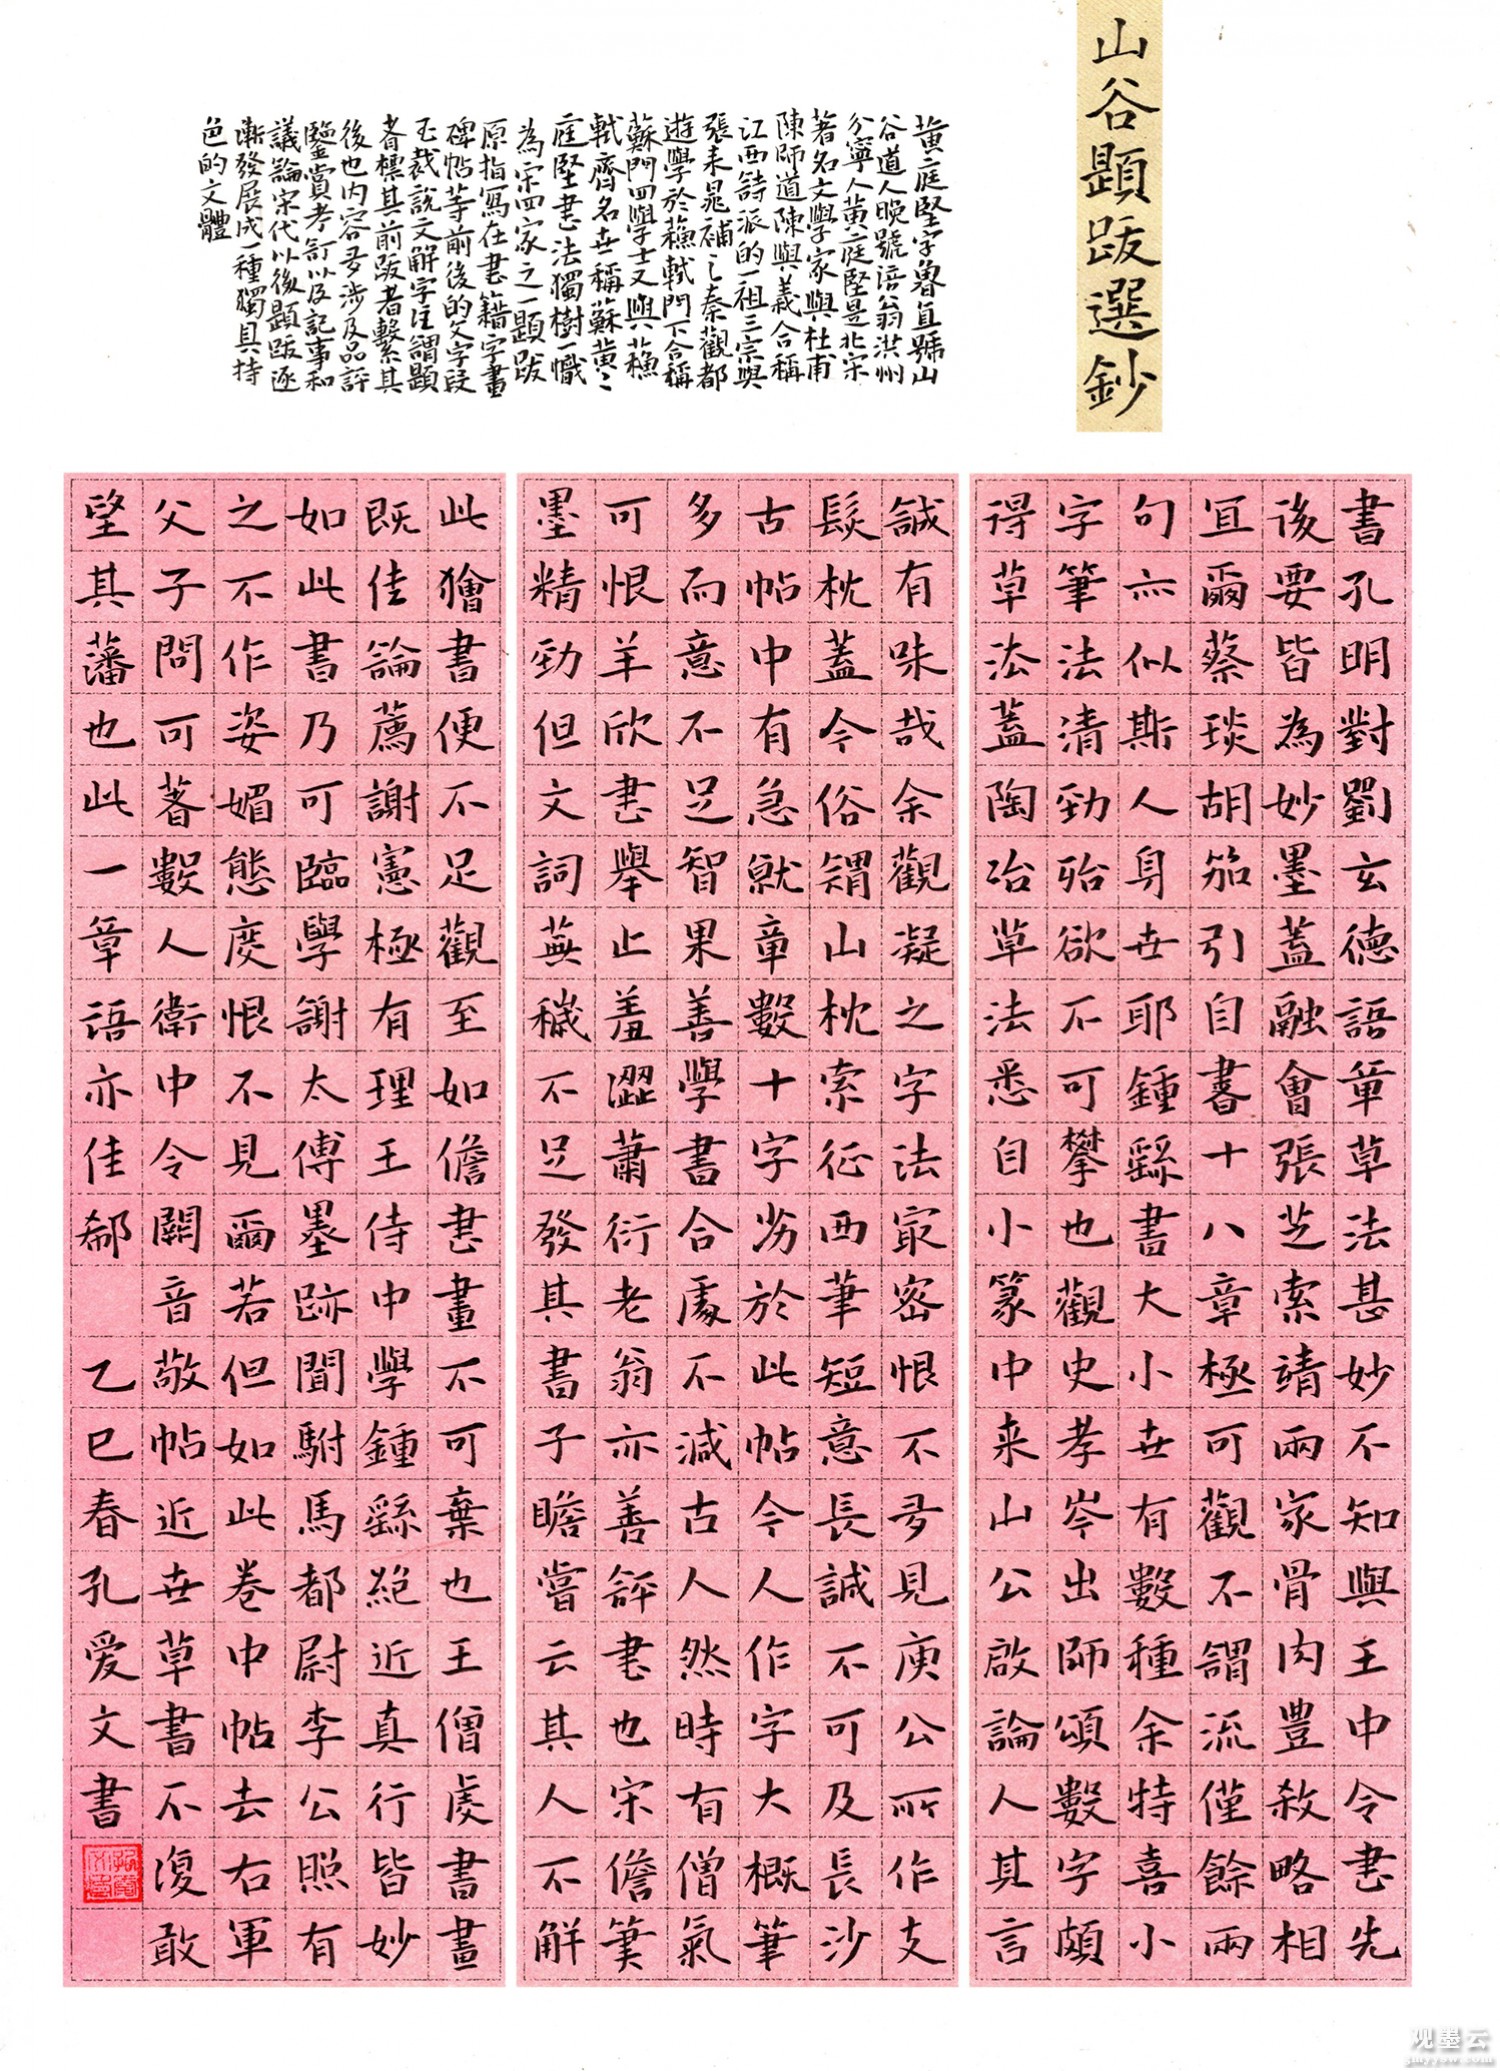 山谷題跋選鈔
黃庭堅字魯直號山
谷道人晚號涪翁洪州
分寧人黃庭堅是北宋
著名文學家與杜甫
陳師道陳與義合稱
江西詩派的一祖三宗與
張耒晁補之秦觀都
遊學於蘓軾門下合稱
蘇門四學士又與蘓
軾齊名世稱蘇黃〻
庭堅書法獨樹一幟
為宋四家之一題跋
原指寫在書籍字畫
碑帖等前後的文字段
玉裁說文解字注謂題
者標其前跋者繫其
後也内容多涉及品評
鑒賞考訂以及記事和
議論宋代以後題跋逐
漸發展成一種獨具特
色的文體
書孔明對劉玄德語章草法甚妙不知與王中令書先
後要皆為妙墨蓋融會張芝索靖兩家骨肉豊殺略相
宜爾蔡琰胡笳引自書十八章極可觀不謂流僅餘兩
句亦似斯人身世耶鍾繇書大小世有數種余特喜小
字筆法清勁殆欲不可攀也觀史孝岑出師頌數字頗
得草法蓋陶冶草法悉自小篆中来山公啟論人其言
誠有味哉余觀凝之字法最密恨不多見庾公所作支
髮枕蓋今俗謂山枕索征西筆短意長誠不可及長沙
古帖中有急就章數十字劣於此帖今人作字大概筆
多而意不足智果善學書合處不減古人然時有僧氣
可恨羊欣書舉止羞澀蕭衍老翁亦善評書也宋儋筆
墨精勁但文詞蕪穢不足發其書子瞻嘗云其人不解
此獪書便不足觀至如儋書畫不可棄也王僧虔書畫
既佳論薦謝憲極有理王侍中學鍾繇絕近真行皆妙
如此書乃可臨學謝太傅墨跡聞駙馬都尉李公照有
之不作姿媚態度恨不見爾若但如此卷中帖去右軍
父子間可著數人衛中令闕音敬帖近世草書不復敢
望其藩也此一章語亦佳郗
乙巳春孔爱文書
观墨云